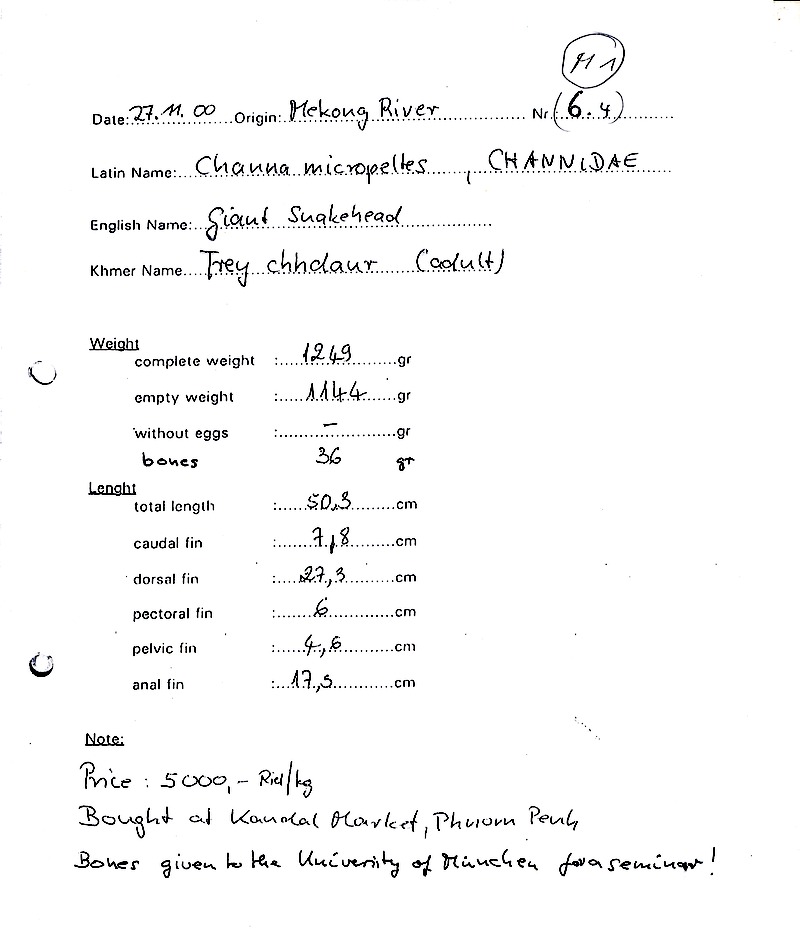 M1
Date: 27.11.00 Origin: Mekong River Nr. (6.4)
Latin Name: Channa micropeltes, CHANNIDAE
English Name: Giant Snakehead
Khmer Name Trey chhdaur (adult)
Weight
complete weight : 1249 gr
empty weight : 1144 gr
without eggs : – gr
bones 36 gr
Lenght
total length : 50,3 cm
caudal fin : 7,8 cm
dorsal fin : 27,3 cm
pectoral fin : 6 cm
pelvic fin : 4,6 cm
anal fin : 17,5 cm
Note:
Price : 5000,- Riel/kg
Bought at Kandal Market, Phnom Penh
Bones given to the University of München for a seminar!